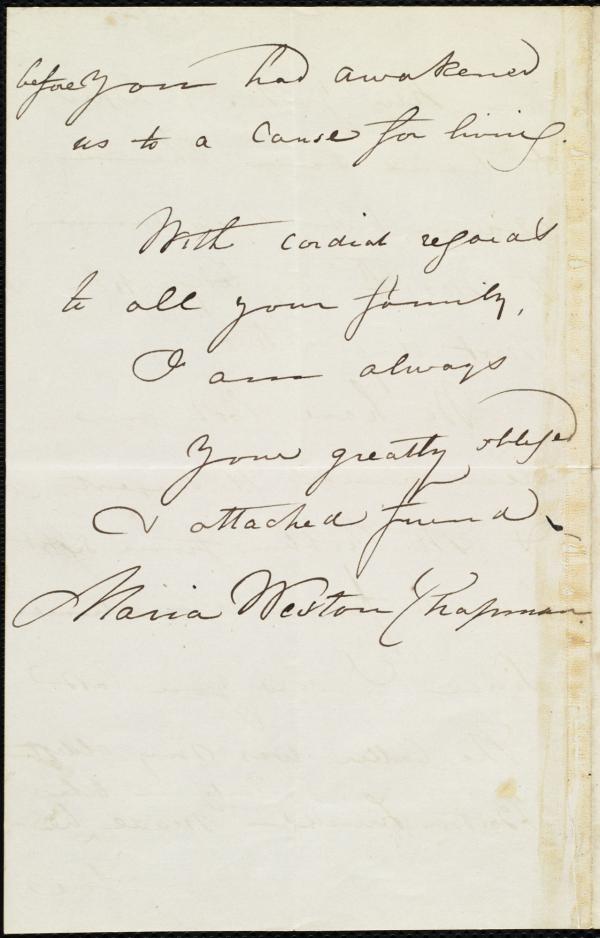 before you had awakened
us to a cause for living.
With cordial regards
to all your family,
I am always
your greatly obliged
& attached friend
Maria Weston Chapman.